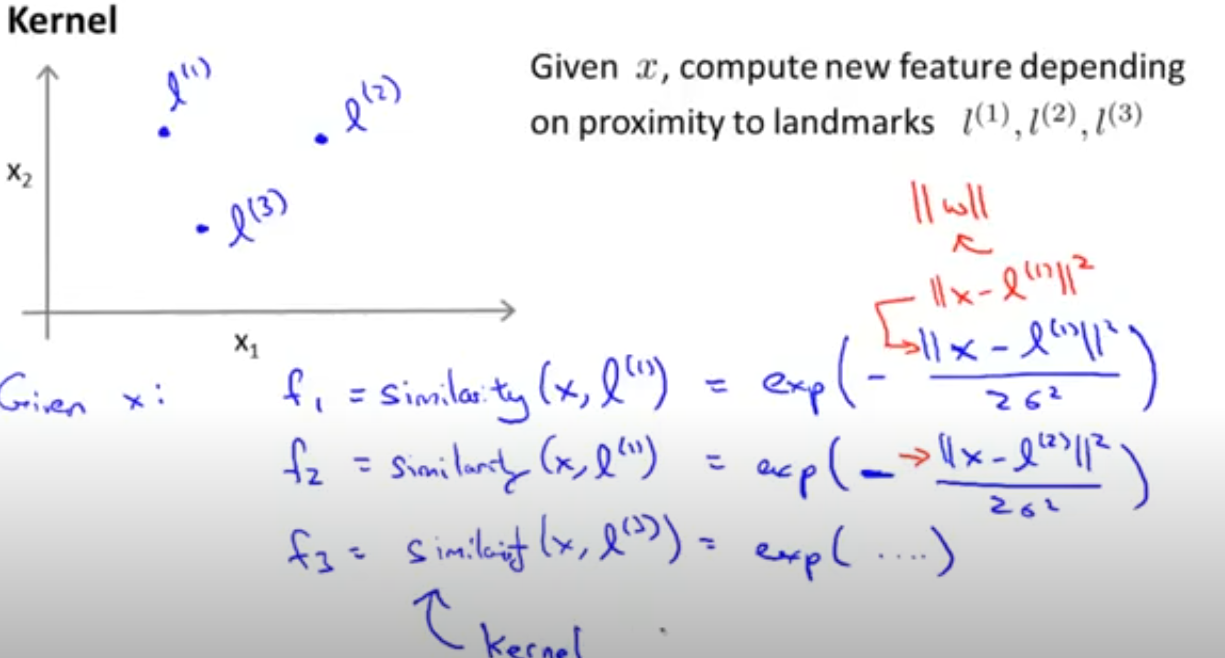 Kernel
l⁽¹⁾
l⁽²⁾
x₂
l⁽³⁾
x₁
Given x, compute new feature depending
on proximity to landmarks l⁽¹⁾, l⁽²⁾, l⁽³⁾
||w||
||x - l⁽¹⁾||²
Given x: f₁ = similarity (x, l⁽¹⁾) = exp(- ||x - l⁽¹⁾||² / 2σ²)
f₂ = similarity (x, l⁽¹⁾) = exp(- ||x - l⁽²⁾||² / 2σ²)
f₃ = similarity (x, l⁽³⁾) = exp( ....)
Kernel